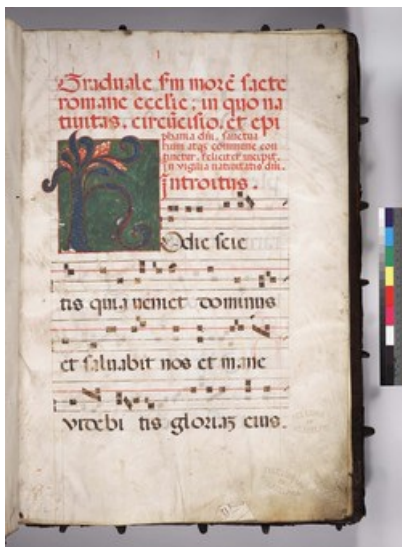 Graduale scďm morē sacte
romane ecclīe: in quo na
tiuitas. circūcisio. et epi
phania dñi. sanctua
rum atq; commune con
tinetur. feliciter incipit.
In vigilia natiuitatis dñi.
Introitus.
Hodie scie
tis quia ueniet dominus
et saluabit nos et mane
videbi tis gloriaʒ eius.